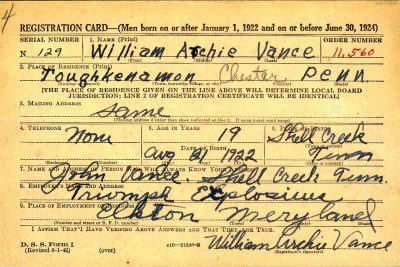 4
REGISTRATION CARD—(Men born on or after January 1, 1922 and on or before June 30, 1924)
SERIAL NUMBER 1. NAME (Print) ORDER NUMBER
N 129 William Archie Vance 11,560
(First) (Middle) (Last)
2. PLACE OF RESIDENCE (Print)
Toughkenamon Chester Penn
[THE PLACE OF RESIDENCE GIVEN ON THE LINE ABOVE WILL DETERMINE LOCAL BOARD
JURISDICTION; LINE 2 OF REGISTRATION CERTIFICATE WILL BE IDENTICAL]
3. MAILING ADDRESS
Same
4. TELEPHONE 5. AGE IN YEARS 6. PLACE OF BIRTH
None 19 Shell Creek
Aug 21 1922
7. NAME AND ADDRESS OF PERSON WHO WILL ALWAYS KNOW YOUR ADDRESS
John Vance. Shell Creek Tenn.
8. EMPLOYER'S NAME AND ADDRESS
Triumph Explosives
9. PLACE OF EMPLOYMENT OR BUSINESS
Elkton Meryland
I AFFIRM THAT I HAVE VERIFIED ABOVE ANSWERS AND THAT THEY ARE TRUE.
D. S. S. Form 1
(Revised 6-1-42) (over) 16—21630-2 William Archie Vance